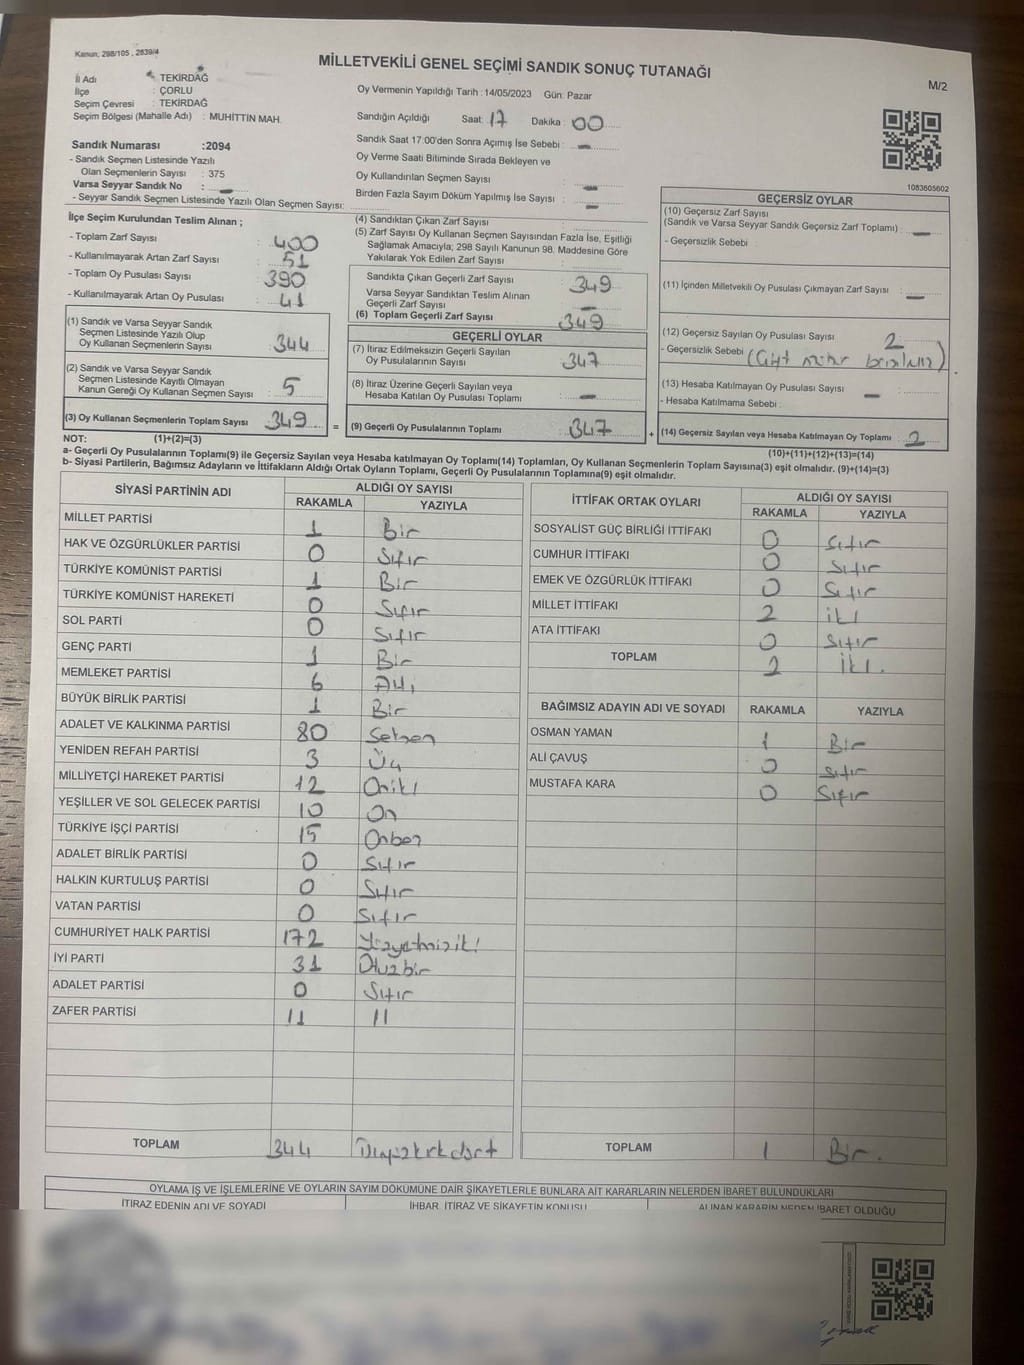 Kanun: 298/105 , 2839/4
MİLLETVEKİLİ GENEL SEÇİMİ SANDIK SONUÇ TUTANAĞI
M/2
İl Adı : TEKİRDAĞ
İlçe : ÇORLU
Seçim Çevresi : TEKİRDAĞ
Seçim Bölgesi (Mahalle Adı) : MUHİTTİN MAH.
Oy Vermenin Yapıldığı Tarih : 14/05/2023 Gün: Pazar
Sandığın Açıldığı Saat: 17 Dakika: 00
Sandık Saat 17:00'den Sonra Açımış İse Sebebi : —
Oy Verme Saati Bitiminde Sırada Bekleyen ve
Oy Kullandırılan Seçmen Sayısı : —
Birden Fazla Sayım Döküm Yapılmış İse Sayısı : —
Sandık Numarası :2094
- Sandık Seçmen Listesinde Yazılı
Olan Seçmenlerin Sayısı : 375
Varsa Seyyar Sandık No : —
- Seyyar Sandık Seçmen Listesinde Yazılı Olan Seçmen Sayısı:
1083605602
İlçe Seçim Kurulundan Teslim Alınan ;
- Toplam Zarf Sayısı : 400
- Kullanılmayarak Artan Zarf Sayısı : 51
- Toplam Oy Pusulası Sayısı : 390
- Kullanılmayarak Artan Oy Pusulası : 41
(1) Sandık ve Varsa Seyyar Sandık
Seçmen Listesinde Yazılı Olup
Oy Kullanan Seçmenlerin Sayısı : 344
(2) Sandık ve Varsa Seyyar Sandık
Seçmen Listesinde Kayıtlı Olmayan
Kanun Gereği Oy Kullanan Seçmen Sayısı : 5
(3) Oy Kullanan Seçmenlerin Toplam Sayısı : 349
(4) Sandıktan Çıkan Zarf Sayısı :
(5) Zarf Sayısı Oy Kullanan Seçmen Sayısından Fazla İse, Eşitliği
Sağlamak Amacıyla; 298 Sayılı Kanunun 98. Maddesine Göre
Yakılarak Yok Edilen Zarf Sayısı :
Sandıkta Çıkan Geçerli Zarf Sayısı : 349
Varsa Seyyar Sandıktan Teslim Alınan
Geçerli Zarf Sayısı : —
(6) Toplam Geçerli Zarf Sayısı : 349
GEÇERLİ OYLAR
(7) İtiraz Edilmeksizin Geçerli Sayılan
Oy Pusulalarının Sayısı : 347
(8) İtiraz Üzerine Geçerli Sayılan veya
Hesaba Katılan Oy Pusulası Toplamı : —
= (9) Geçerli Oy Pusulalarının Toplamı : 347
GEÇERSİZ OYLAR
(10) Geçersiz Zarf Sayısı
(Sandık ve Varsa Seyyar Sandık Geçersiz Zarf Toplamı) : —
- Geçersizlik Sebebi :
(11) İçinden Milletvekili Oy Pusulası Çıkmayan Zarf Sayısı : —
(12) Geçersiz Sayılan Oy Pusulası Sayısı : 2
- Geçersizlik Sebebi :
(13) Hesaba Katılmayan Oy Pusulası Sayısı : —
- Hesaba Katılmama Sebebi :
+ (14) Geçersiz Sayılan veya Hesaba Katılmayan Oy Toplamı : 2
NOT: (1)+(2)=(3)
(10)+(11)+(12)+(13)=(14)
a- Geçerli Oy Pusulalarının Toplamı(9) ile Geçersiz Sayılan veya Hesaba katılmayan Oy Toplamı(14) Toplamları, Oy Kullanan Seçmenlerin Toplam Sayısına(3) eşit olmalıdır. (9)+(14)=(3)
b- Siyasi Partilerin, Bağımsız Adayların ve İttifakların Aldığı Ortak Oyların Toplamı, Geçerli Oy Pusulalarının Toplamına(9) eşit olmalıdır.
SİYASİ PARTİNİN ADI ALDIĞI OY SAYISI
RAKAMLA YAZIYLA
MİLLET PARTİSİ 1 Bir
HAK VE ÖZGÜRLÜKLER PARTİSİ 0 Sıfır
TÜRKİYE KOMÜNİST PARTİSİ 1 Bir
TÜRKİYE KOMÜNİST HAREKETİ 0 Sıfır
SOL PARTİ 0 Sıfır
GENÇ PARTİ 1 Bir
MEMLEKET PARTİSİ 6 Altı
BÜYÜK BİRLİK PARTİSİ 1 Bir
ADALET VE KALKINMA PARTİSİ 80 Seksen
YENİDEN REFAH PARTİSİ 3 Üç
MİLLİYETÇİ HAREKET PARTİSİ 12 Oniki
YEŞİLLER VE SOL GELECEK PARTİSİ 10 On
TÜRKİYE İŞÇİ PARTİSİ 15 Onbeş
ADALET BİRLİK PARTİSİ 0 Sıfır
HALKIN KURTULUŞ PARTİSİ 0 Sıfır
VATAN PARTİSİ 0 Sıfır
CUMHURİYET HALK PARTİSİ 172 Yüzyetmişiki
İYİ PARTİ 31 Otuzbir
ADALET PARTİSİ 0 Sıfır
ZAFER PARTİSİ 11 11
TOPLAM 344 Üçyüzkırkdört
İTTİFAK ORTAK OYLARI ALDIĞI OY SAYISI
RAKAMLA YAZIYLA
SOSYALİST GÜÇ BİRLİĞİ İTTİFAKI 0 Sıfır
CUMHUR İTTİFAKI 0 Sıfır
EMEK VE ÖZGÜRLÜK İTTİFAKI 0 Sıfır
MİLLET İTTİFAKI 2 İki
ATA İTTİFAKI 0 Sıfır
TOPLAM 2 İki.
BAĞIMSIZ ADAYIN ADI VE SOYADI RAKAMLA YAZIYLA
OSMAN YAMAN 1 Bir
ALİ ÇAVUŞ 0 Sıfır
MUSTAFA KARA 0 Sıfır
TOPLAM 1 Bir.
OYLAMA İŞ VE İŞLEMLERİNE VE OYLARIN SAYIM DÖKÜMÜNE DAİR ŞİKAYETLERLE BUNLARA AİT KARARLARIN NELERDEN İBARET BULUNDUKLARI
İTİRAZ EDENİN ADI VE SOYADI İHBAR, İTİRAZ VE ŞİKAYETİN KONUSU ALINAN KARARIN NEDEN İBARET OLDUĞU